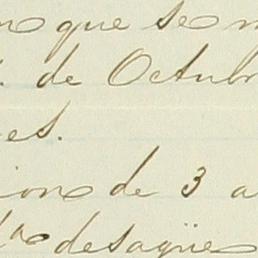 n que se m
. de Octubr
es.
ion de 3 a
desagüe